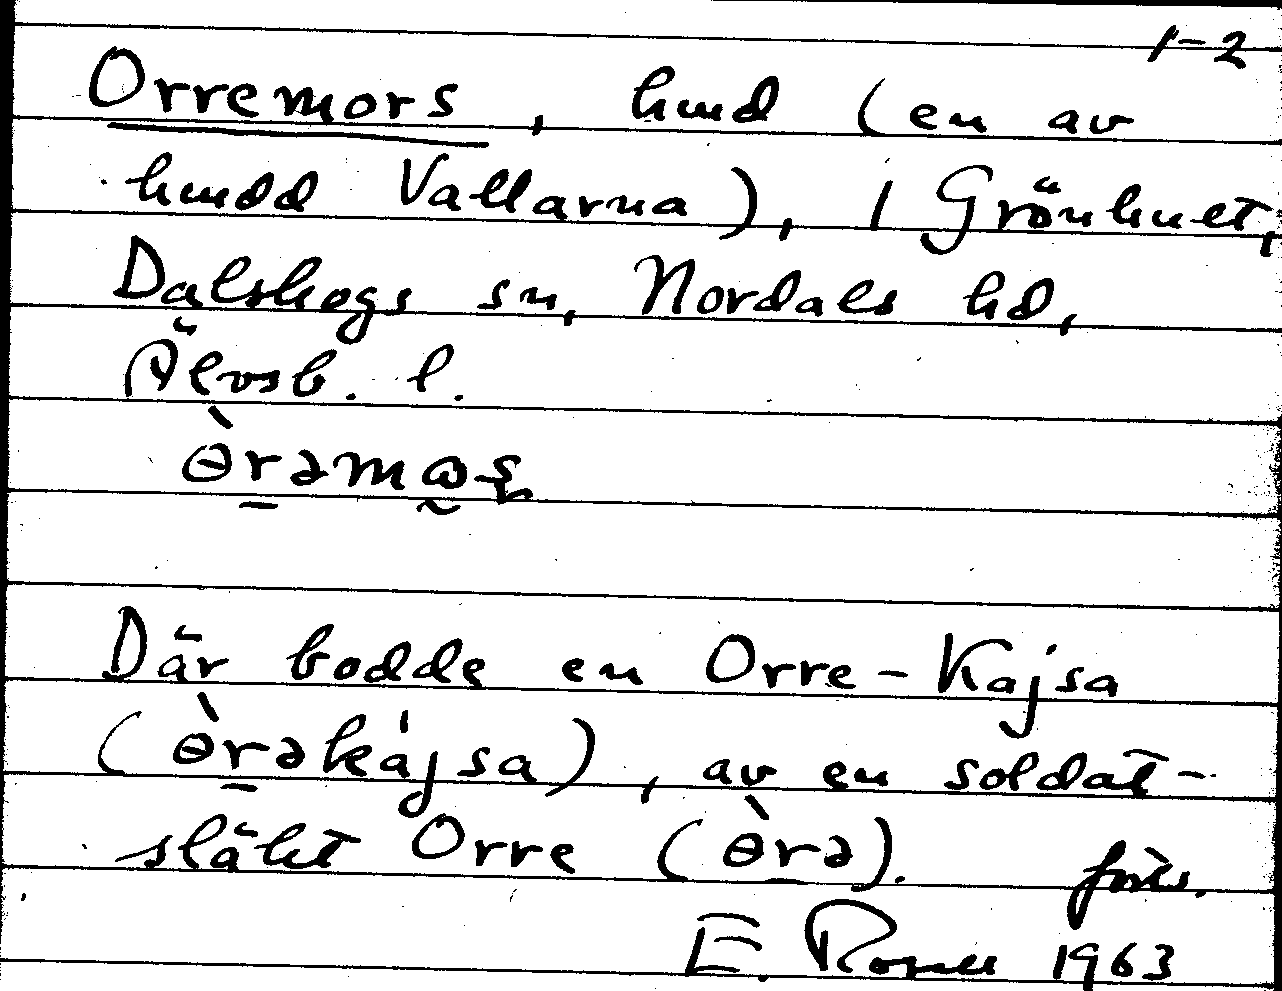 1-2
Orremors, hmd (en av
hmdd Vallarna), i Grönhult,
Dalskogs sn, Nordals hd,
Älvsb. l.
Där bodde en Orre-Kajsa
(ɵ̀rəkájsa), av en soldat-
släkt Orre (ɵ̀rə). forts.
E. 1963